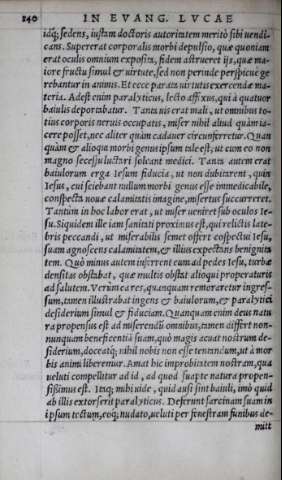 240 IN EVANG. LVCAE
idq; sedens, iustam doctoris autoritatem meritò sibi uendi-
cans. Supererat corporalis morbi depulsio, quæ quoniam
erat oculis omnium exposita, fidem astrueret ijs, quæ ma-
iore fructu simul & uirtute, sed non perinde perspicuè ge
rebantur in animis. Et ecce parata uirtutis exercendæ ma-
teria. Adest enim paralyticus, lecto affixus, qui à quatuor
baiulis deportabatur. Tanta uis erat mali, ut omnibus to-
tius corporis neruis occupatis, miser nihil aliud quàm ia-
cere posset, nec aliter quàm cadauer circunferretur. Quan
quàm & alioqui morbi genus ipsum tale est, ut cum eo non
magno successu luctari soleant medici. Tanta autem erat
baiulorum erga Iesum fiducia, ut non dubitarent, quin
Iesus, cui sciebant nullum morbi genus esse immedicabile,
conspecta nouæ calamitatis imagine, misertus succurreret.
Tantùm in hoc labor erat, ut miser ueniret sub oculos Ie-
su. Siquidem ille iam sanitati proximus est, qui relictis late-
bris peccandi, ut miserabilis semet offert conspectui Iesu,
suam agnoscens calamitatem, & illius expectans benignita
tem. Quò minus autem inferrent eum ad pedes Iesu, turbæ
densitas obstabat, quæ multis obstat alioqui properaturis
ad salutem. Verùm ea res, quanquam remoraretur ingres-
sum, tamen illustrabat ingens & baiulorum, & paralytici
desiderium simul & fiduciam. Quanquam enim deus natu
ra propensus est ad miserendū omnibus, tamen differt non-
nunquam beneficentiā suam, quò magis acuat nostrum de-
siderium, doceatq; nihil nobis non esse tentandum, ut à mor
bis animi liberemur. Amat hic improbitatem nostram, qua
ueluti compellitur ad id, ad quod suapte natura propen-
sissimus est. Itaq; mihi uide, quid ausi sint baiuli, imò quid
ab illis extorserit paralyticus. Deferunt sarcinam suam in
ipsum tectum, eoq; nudato, ueluti per fenestram funibus de-
mitt